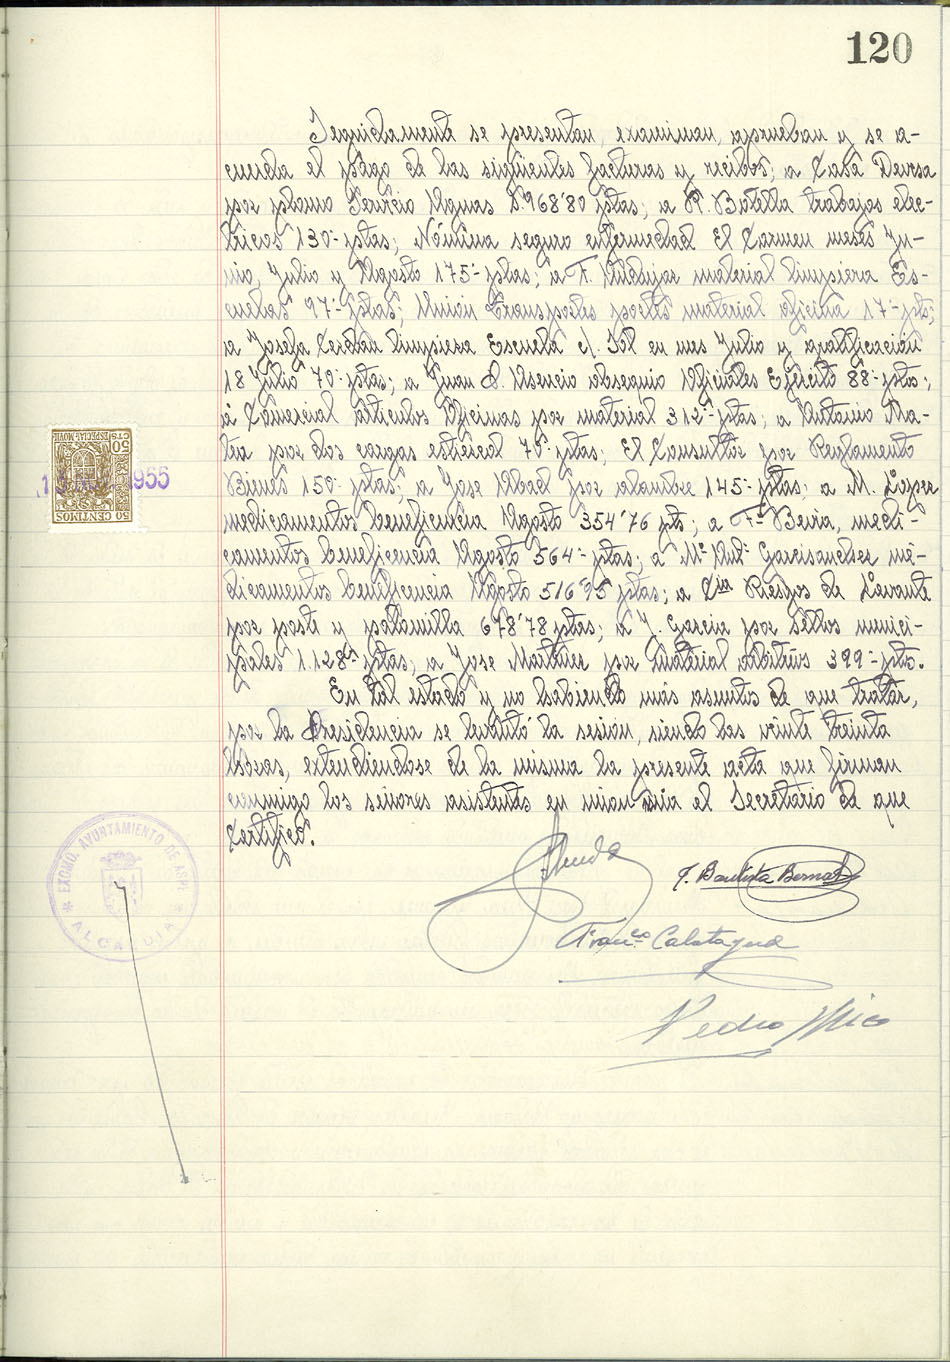 120
Seguidamente se presentan, examinan, aprueban y se a-
cuerda el pago de las siguientes facturas y recibos; a Casa Devesa
por plomo Servicio Aguas 8.968'80 ptas; a R. Botella trabajos eléc-
tricos 130- ptas; Nómina seguro enfermedad El Carmen meses Ju-
nio, Julio y Agosto 175- ptas; a F. material limpieza Es-
cuelas 97- ptas; Unión Transportes portes material oficina 17- pts;
a Josefa Cerdán limpieza Escuela c/. Sol en mes Julio y gratificación
18 Julio 70- ptas; a Juan B. Asencio obsequio Oficiales Ejército 88- ptas;
a Comercial articulos Oficinas por material 312- ptas; a Antonio Ma-
teu por dos cargas estiercol 70- ptas; El Consultor por Reglamento
Bienes 150- ptas; a Jose Abad por alambre 145- ptas; a M. López
medicamentos beneficencia Agosto 354'76 pts; a Fco Beviá, medi-
camentos beneficencia Agosto 564- ptas; a Mª Garcisanchez me-
dicamentos beneficencia Agosto 516'95 ptas; a Cía Riegos de Levante
por poste y palomilla 678'78 ptas; a J. García por sellos munici-
pales 1.128- ptas; a Jose Martinez por material arbitrios 399- pts.
En tal estado y no habiendo más asuntos de que tratar,
por la Presidencia se levantó la sesión, siendo las veinte treinta
horas, extendiéndose de la misma la presente acta que firman
conmigo los señores asistentes en unión mía el Secretario de que
Certifico.
J. Bautista Bernad
Franco Calatayud
Pedro Mico
50 CTS. ESPECIAL MOVIL
50 CENTIMOS
1955
EXCMO. AYUNTAMIENTO DE ASPE
* ALCALDIA *